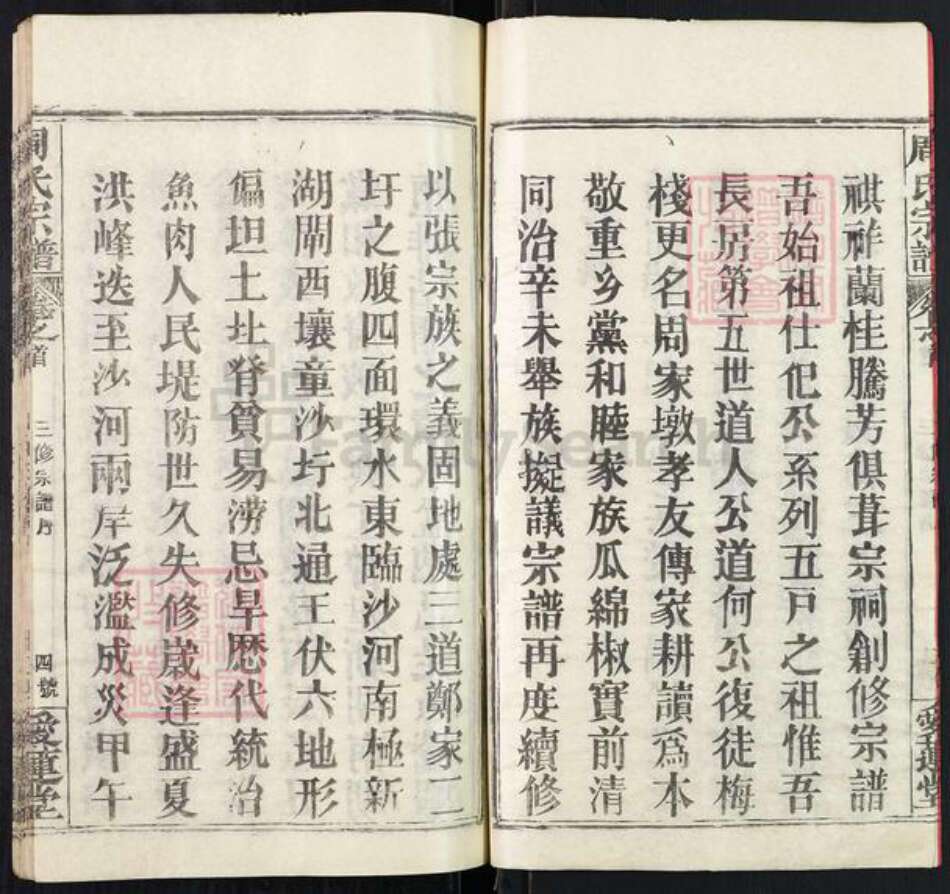 祺祥蘭桂騰芳俱葺宗祠創修宗譜
吾始祖仕俒公系列五戸之祖惟吾
長房第五世道人公道何公復徒梅
棧更名周家墩孝友傳家耕讀爲本
敬重乡黨和睦家族瓜綿椒實前清
同治辛未舉族擬議宗譜再度續修
以張宗族之義固地處三道鄭家工
圩之腹四面環水東臨沙河南極新
湖關西壤童沙圩北通王伏六地形
偏坦土圵脊貧易澇忌旱歷代統治
魚肉人民堤防世久失修歲逢盛夏
洪峰迭至沙河兩岸泛濫成災甲午
周氏宗譜
卷之首
三修宗譜序
四號
愛蓮堂
周氏宗譜
愛蓮堂